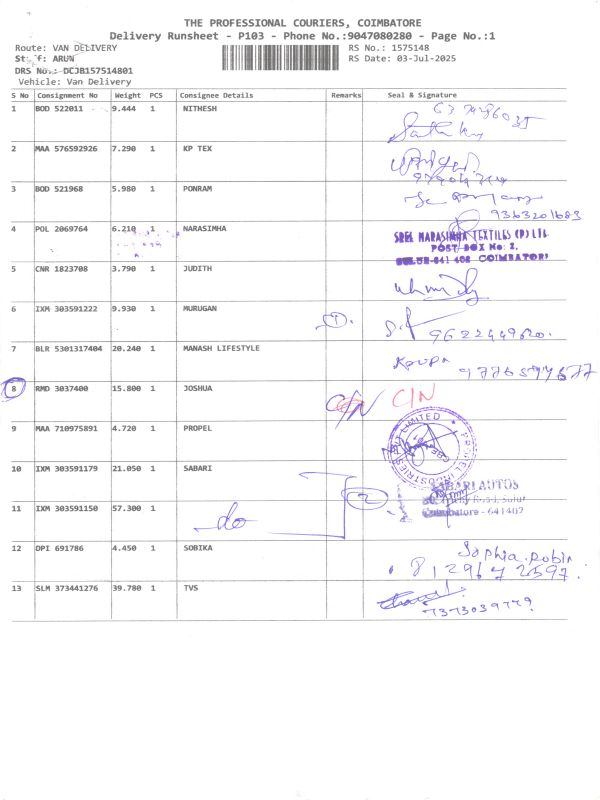 THE PROFESSIONAL COURIERS, COIMBATORE
Delivery Runsheet - P103 - Phone No.:9047080280 - Page No.:1
Route: VAN DELIVERY
RS No.: 1575148
Staff: ARUN
RS Date: 03-Jul-2025
DRS No.: DCJB157514801
Vehicle: Van Delivery
S No Consignment No Weight PCS Consignee Details Remarks Seal & Signature
1 BOD 522011 9.444 1 NITHESH
2 MAA 576592926 7.290 1 KP TEX
3 BOD 521968 5.980 1 PONRAM
9363201689
4 POL 2069764 6.210 1 NARASIMHA
SREE NARASIMHA TEXTILES (P) LTD
POST BOX No: 2,
SULUR-641 402 COIMBATORE
5 CNR 1823708 3.790 1 JUDITH
6 IXM 303591222 9.930 1 MURUGAN
1
9622449620.
7 BLR 5301317404 20.240 1 MANASH LIFESTYLE
8 RMD 3037400 15.800 1 JOSHUA C/N C/N
9 MAA 710975891 4.720 1 PROPEL
PROPEL INDUSTRIES PVT LIMITED
10 IXM 303591179 21.050 1 SABARI
2
SABARI AUTOS
Trichy Road, Sulur
Coimbatore - 641402
11 IXM 303591150 57.300 1 do
12 DPI 691786 4.450 1 SOBIKA
Sophia Robin
8129672597.
13 SLM 373441276 39.780 1 TVS
7373039779